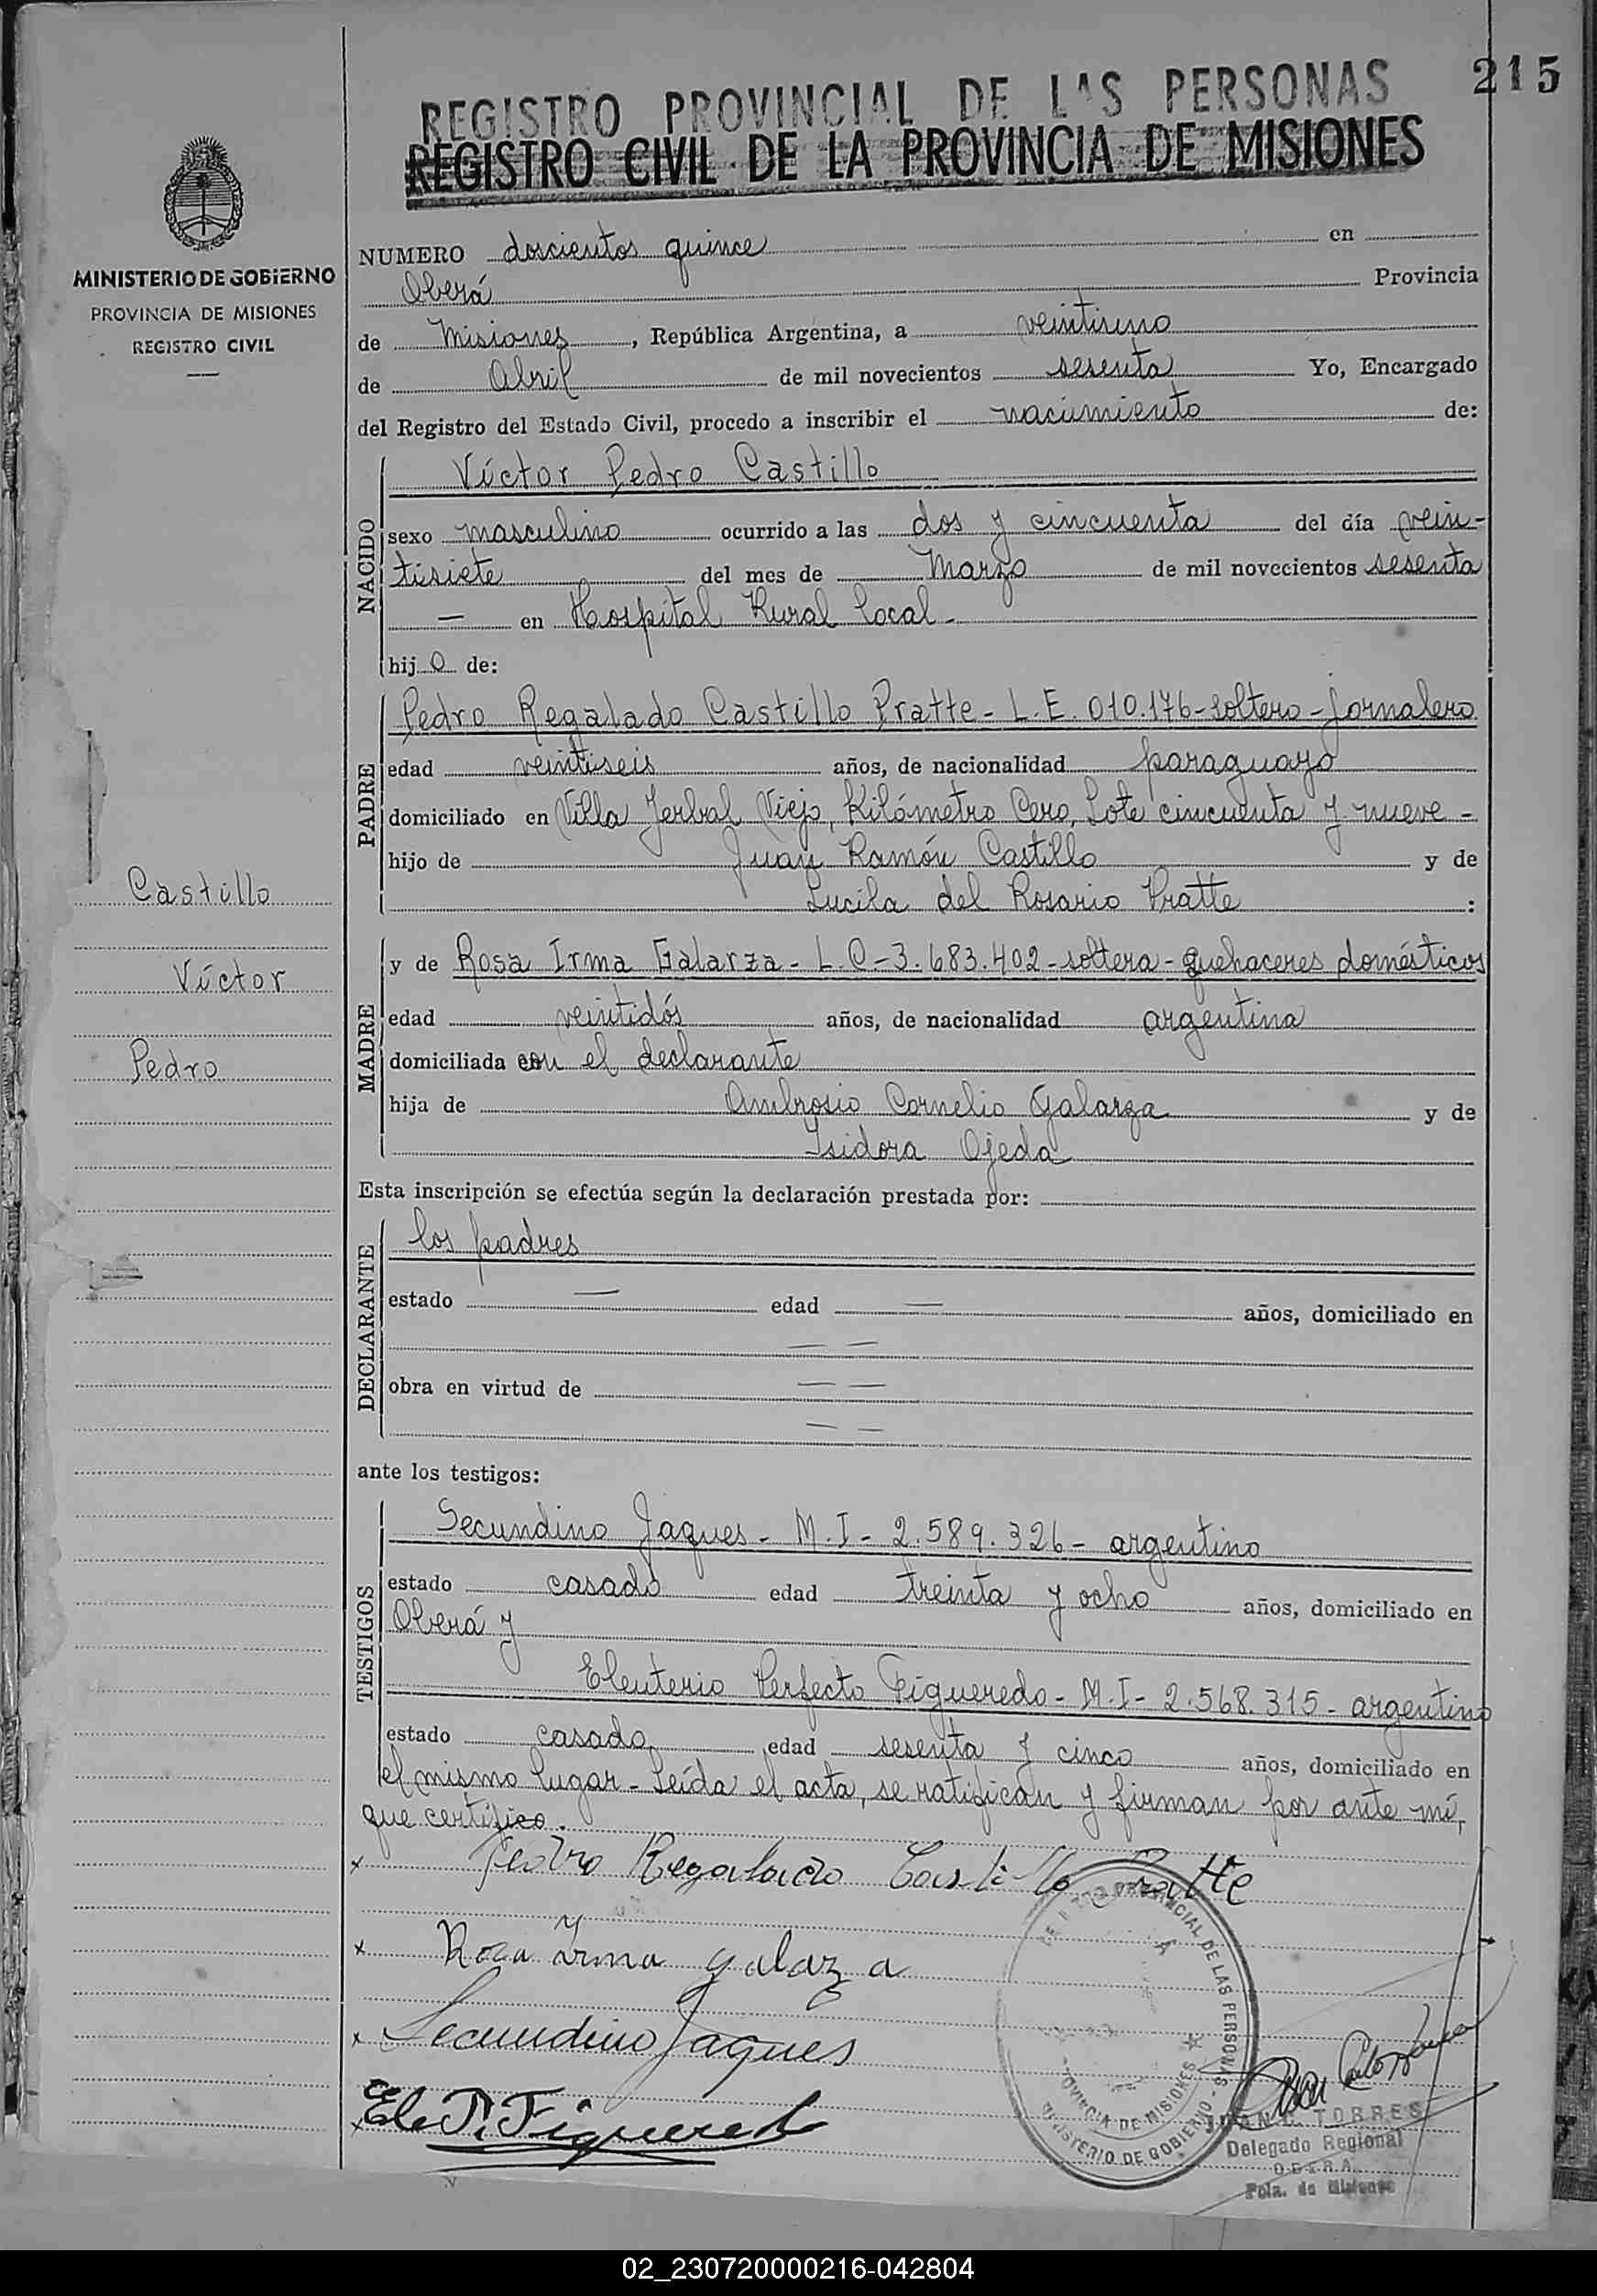 215
REGISTRO PROVINCIAL DE LAS PERSONAS
REGISTRO CIVIL DE LA PROVINCIA DE MISIONES
MINISTERIO DE GOBIERNO
PROVINCIA DE MISIONES
REGISTRO CIVIL
NUMERO doscientos quince en
Oberá Provincia
de Misiones, República Argentina, a veintiuno
de Abril de mil novecientos sesenta Yo, Encargado
del Registro del Estado Civil, procedo a inscribir el nacimiento de:
NACIDO
Víctor Pedro Castillo
sexo masculino ocurrido a las dos y cincuenta del día vein-
tisiete del mes de Marzo de mil novecientos sesenta
— en Hospital Rural Local -
hijo de:
PADRE
Pedro Regalado Castillo Pratte - L.E. 010.176 - soltero - jornalero
edad veintiseis años, de nacionalidad paraguayo
domiciliado en Villa Yerbal Viejo, Kilómetro Cero, Lote cincuenta y nueve -
hijo de Juan Ramón Castillo y de
Lucila del Rosario Pratte :
Castillo
Víctor
Pedro
MADRE
y de Rosa Irma Galarza - L.C - 3.683.402 - soltera - quehaceres domésticos
edad veintidós años, de nacionalidad argentina
domiciliada con el declarante
hija de Ambrosio Cornelio Galarza y de
Isidora Ojeda
Esta inscripción se efectúa según la declaración prestada por:
DECLARANTE
los padres
estado — edad — años, domiciliado en
— —
obra en virtud de — —
— —
ante los testigos:
TESTIGOS
Secundino Jaques - M.I - 2.589.326 - argentino
estado casado edad treinta y ocho años, domiciliado en
Oberá y
Eleuterio Perfecto Figueredo - M.I - 2.568.315 - argentino
estado casado edad sesenta y cinco años, domiciliado en
el mismo lugar - Leída el acta, se ratifican y firman por ante mí,
que certifico.
x Pedro Regalado Castillo Pratte
x Rosa irma galaza
x Secundino Jaques
x Ele P. Figueredo
PROVINCIAL DE LAS PERSONAS
PROVINCIA DE MISIONES
MINISTERIO DE GOBIERNO
JUAN C. TORRES
Delegado Regional
OBERA
Pcia. de Misiones
02_230720000216-042804